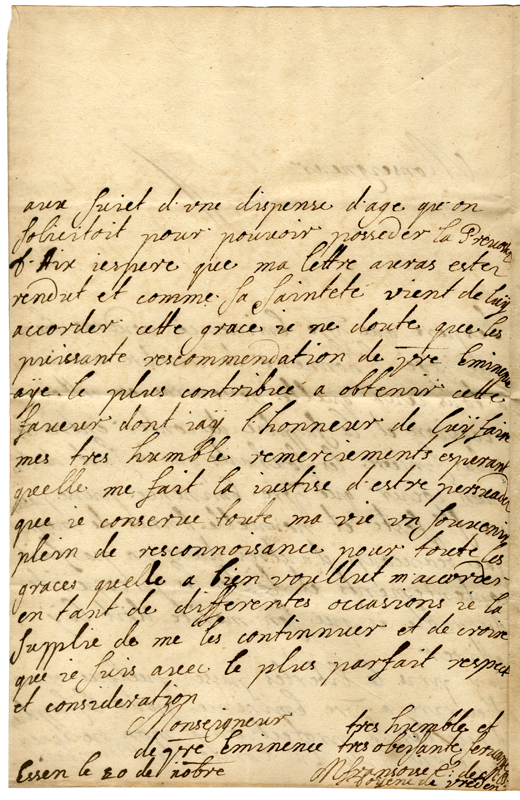 aux suiet d'vne dispense d'age que on
solicitoit pour pouvoir posseder la
d'Aix iespere que ma lettre auras ester
rendut et comme sa sainteté vient de luy
accorder cette grace ie ne doute que les
puissante rescommendation de vre Eminence
aye le plus contribuee a obtenir cette
faveur dont iay l'honneur de luy faire
mes tres humble remerciements esperant
quelle me fait la iustise d'estre persuader
que ie conserve toute ma vie vn souvenir
plein de resconnoisance pour toute les
graces quelle a bien voullut m'accorder
en tant de differentes occasions ie la
supplie de me les continnuer et de croire
que ie suis avec le plus parfait respect
et consideration
Monseigneur
de vre Eminence
tres humble et
tres obeisante servante
Essen le 20 de nobre
fransoise de